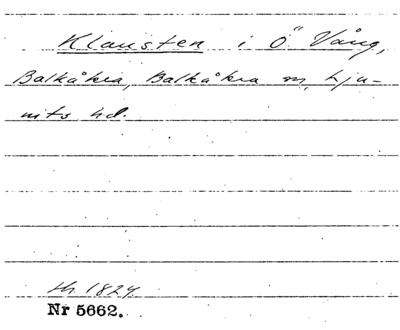 Klausten i Ö Vång,
Balkåkra, Balkåkra sn, Lju-
nits hd.
th. 1824
Nr 5662.